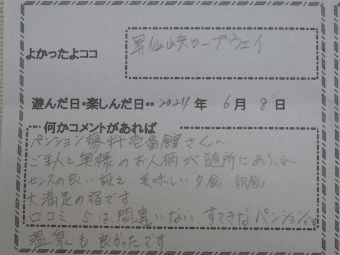 よかったよココ
昇仙峡ロープウェイ
遊んだ日・楽しんだ日・・2024年 6月 8日
何かコメントがあれば
ペンション蓼科壱番館さんへ
ご主人と奥様のお人柄が随所にあふれ
センスの良い設え、美味しい夕食、朝食
大満足の宿です
口コミ 5は間違いない すてきなペンション
温泉も良かったです.